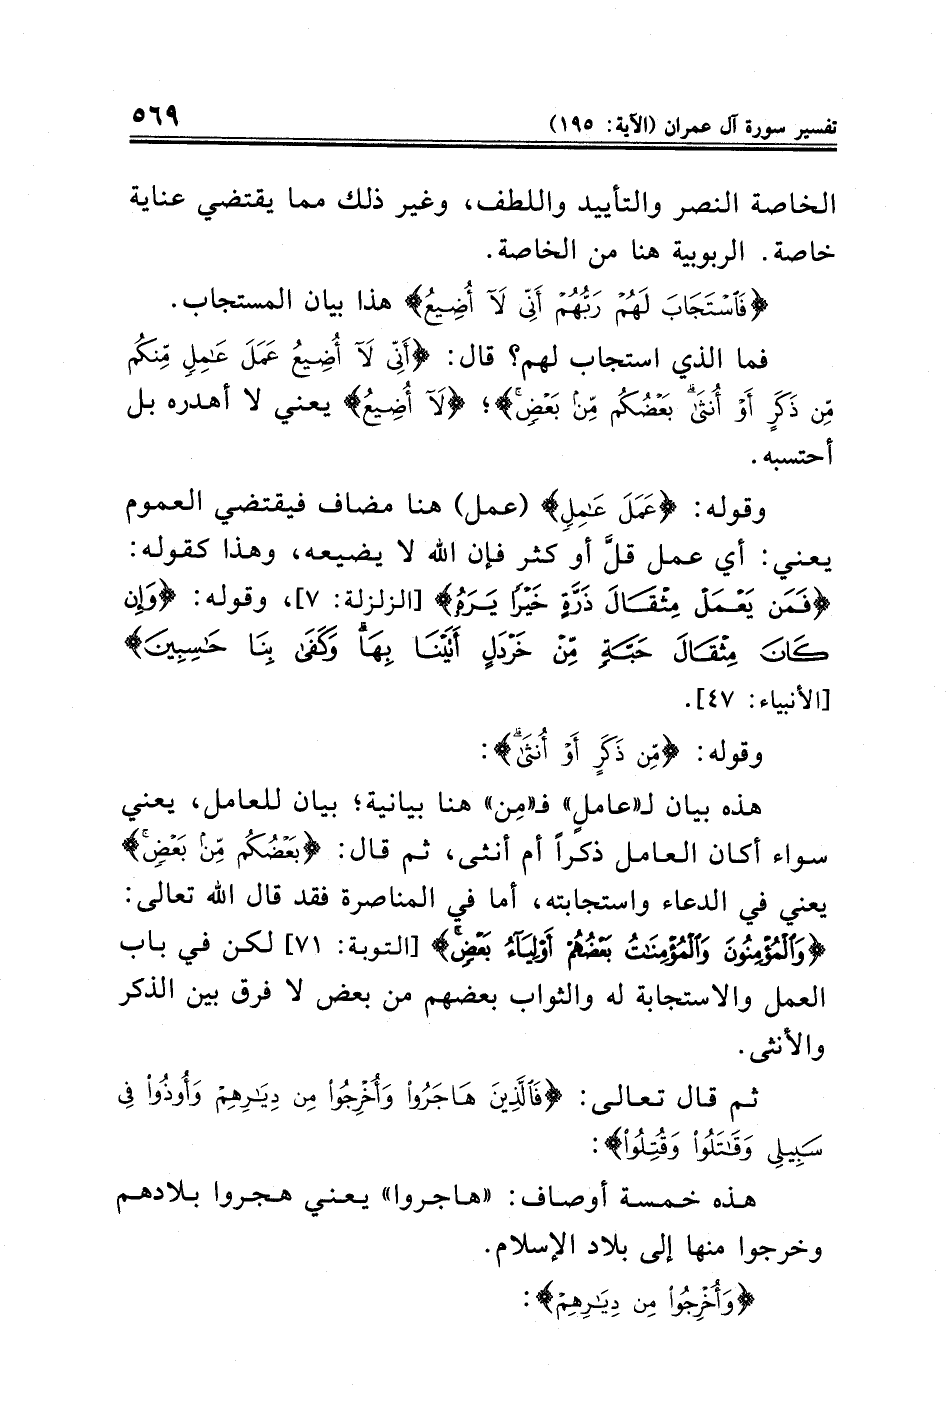 تفسير سورة آل عمران (الآية: ١٩٥) ٥٦٩
الخاصة النصر والتأييد واللطف، وغير ذلك مما يقتضي عناية
خاصة. الربوبية هنا من الخاصة.
﴿فَٱسْتَجَابَ لَهُمْ رَبُّهُمْ أَنِّى لَآ أُضِيعُ﴾ هذا بيان المستجاب.
فما الذي استجاب لهم؟ قال: ﴿أَنِّى لَآ أُضِيعُ عَمَلَ عَٰمِلٍ مِّنكُم
مِّن ذَكَرٍ أَوْ أُنثَىٰ ۖ بَعْضُكُم مِّنۢ بَعْضٍ ۚ﴾؛ ﴿لَآ أُضِيعُ﴾ يعني لا أهدره بل
أحتسبه.
وقوله: ﴿عَمَلَ عَٰمِلٍ﴾ (عمل) هنا مضاف فيقتضي العموم
يعني: أي عمل قلَّ أو كثر فإن الله لا يضيعه، وهذا كقوله:
﴿فَمَن يَعْمَلْ مِثْقَالَ ذَرَّةٍ خَيْرًا يَرَهُۥ﴾ [الزلزلة: ٧]، وقوله: ﴿وَإِن
كَانَ مِثْقَالَ حَبَّةٍ مِّنْ خَرْدَلٍ أَتَيْنَا بِهَا ۗ وَكَفَىٰ بِنَا حَٰسِبِينَ﴾
[الأنبياء: ٤٧].
وقوله: ﴿مِّن ذَكَرٍ أَوْ أُنثَىٰ ۖ﴾:
هذه بيان لـ«عاملٍ» فـ«مِن» هنا بيانية؛ بيان للعامل، يعني
سواء أكان العامل ذكراً أم أنثى، ثم قال: ﴿بَعْضُكُم مِّنۢ بَعْضٍ ۚ﴾
يعني في الدعاء واستجابته، أما في المناصرة فقد قال الله تعالى:
﴿وَٱلْمُؤْمِنُونَ وَٱلْمُؤْمِنَٰتُ بَعْضُهُمْ أَوْلِيَآءُ بَعْضٍ ۚ﴾ [التوبة: ٧١] لكن في باب
العمل والاستجابة له والثواب بعضهم من بعض لا فرق بين الذكر
والأنثى.
ثم قال تعالى: ﴿فَٱلَّذِينَ هَاجَرُوا۟ وَأُخْرِجُوا۟ مِن دِيَٰرِهِمْ وَأُوذُوا۟ فِى
سَبِيلِى وَقَٰتَلُوا۟ وَقُتِلُوا۟﴾:
هذه خمسة أوصاف: «هاجروا» يعني هجروا بلادهم
وخرجوا منها إلى بلاد الإسلام.
﴿وَأُخْرِجُوا۟ مِن دِيَٰرِهِمْ﴾: